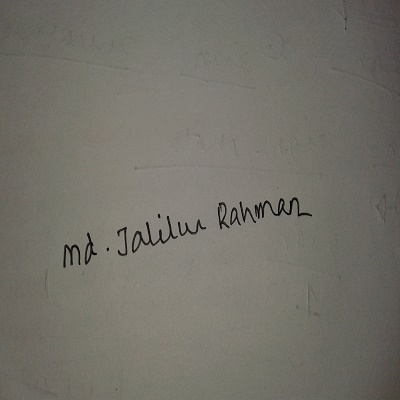 Md. Jalilur Rahman